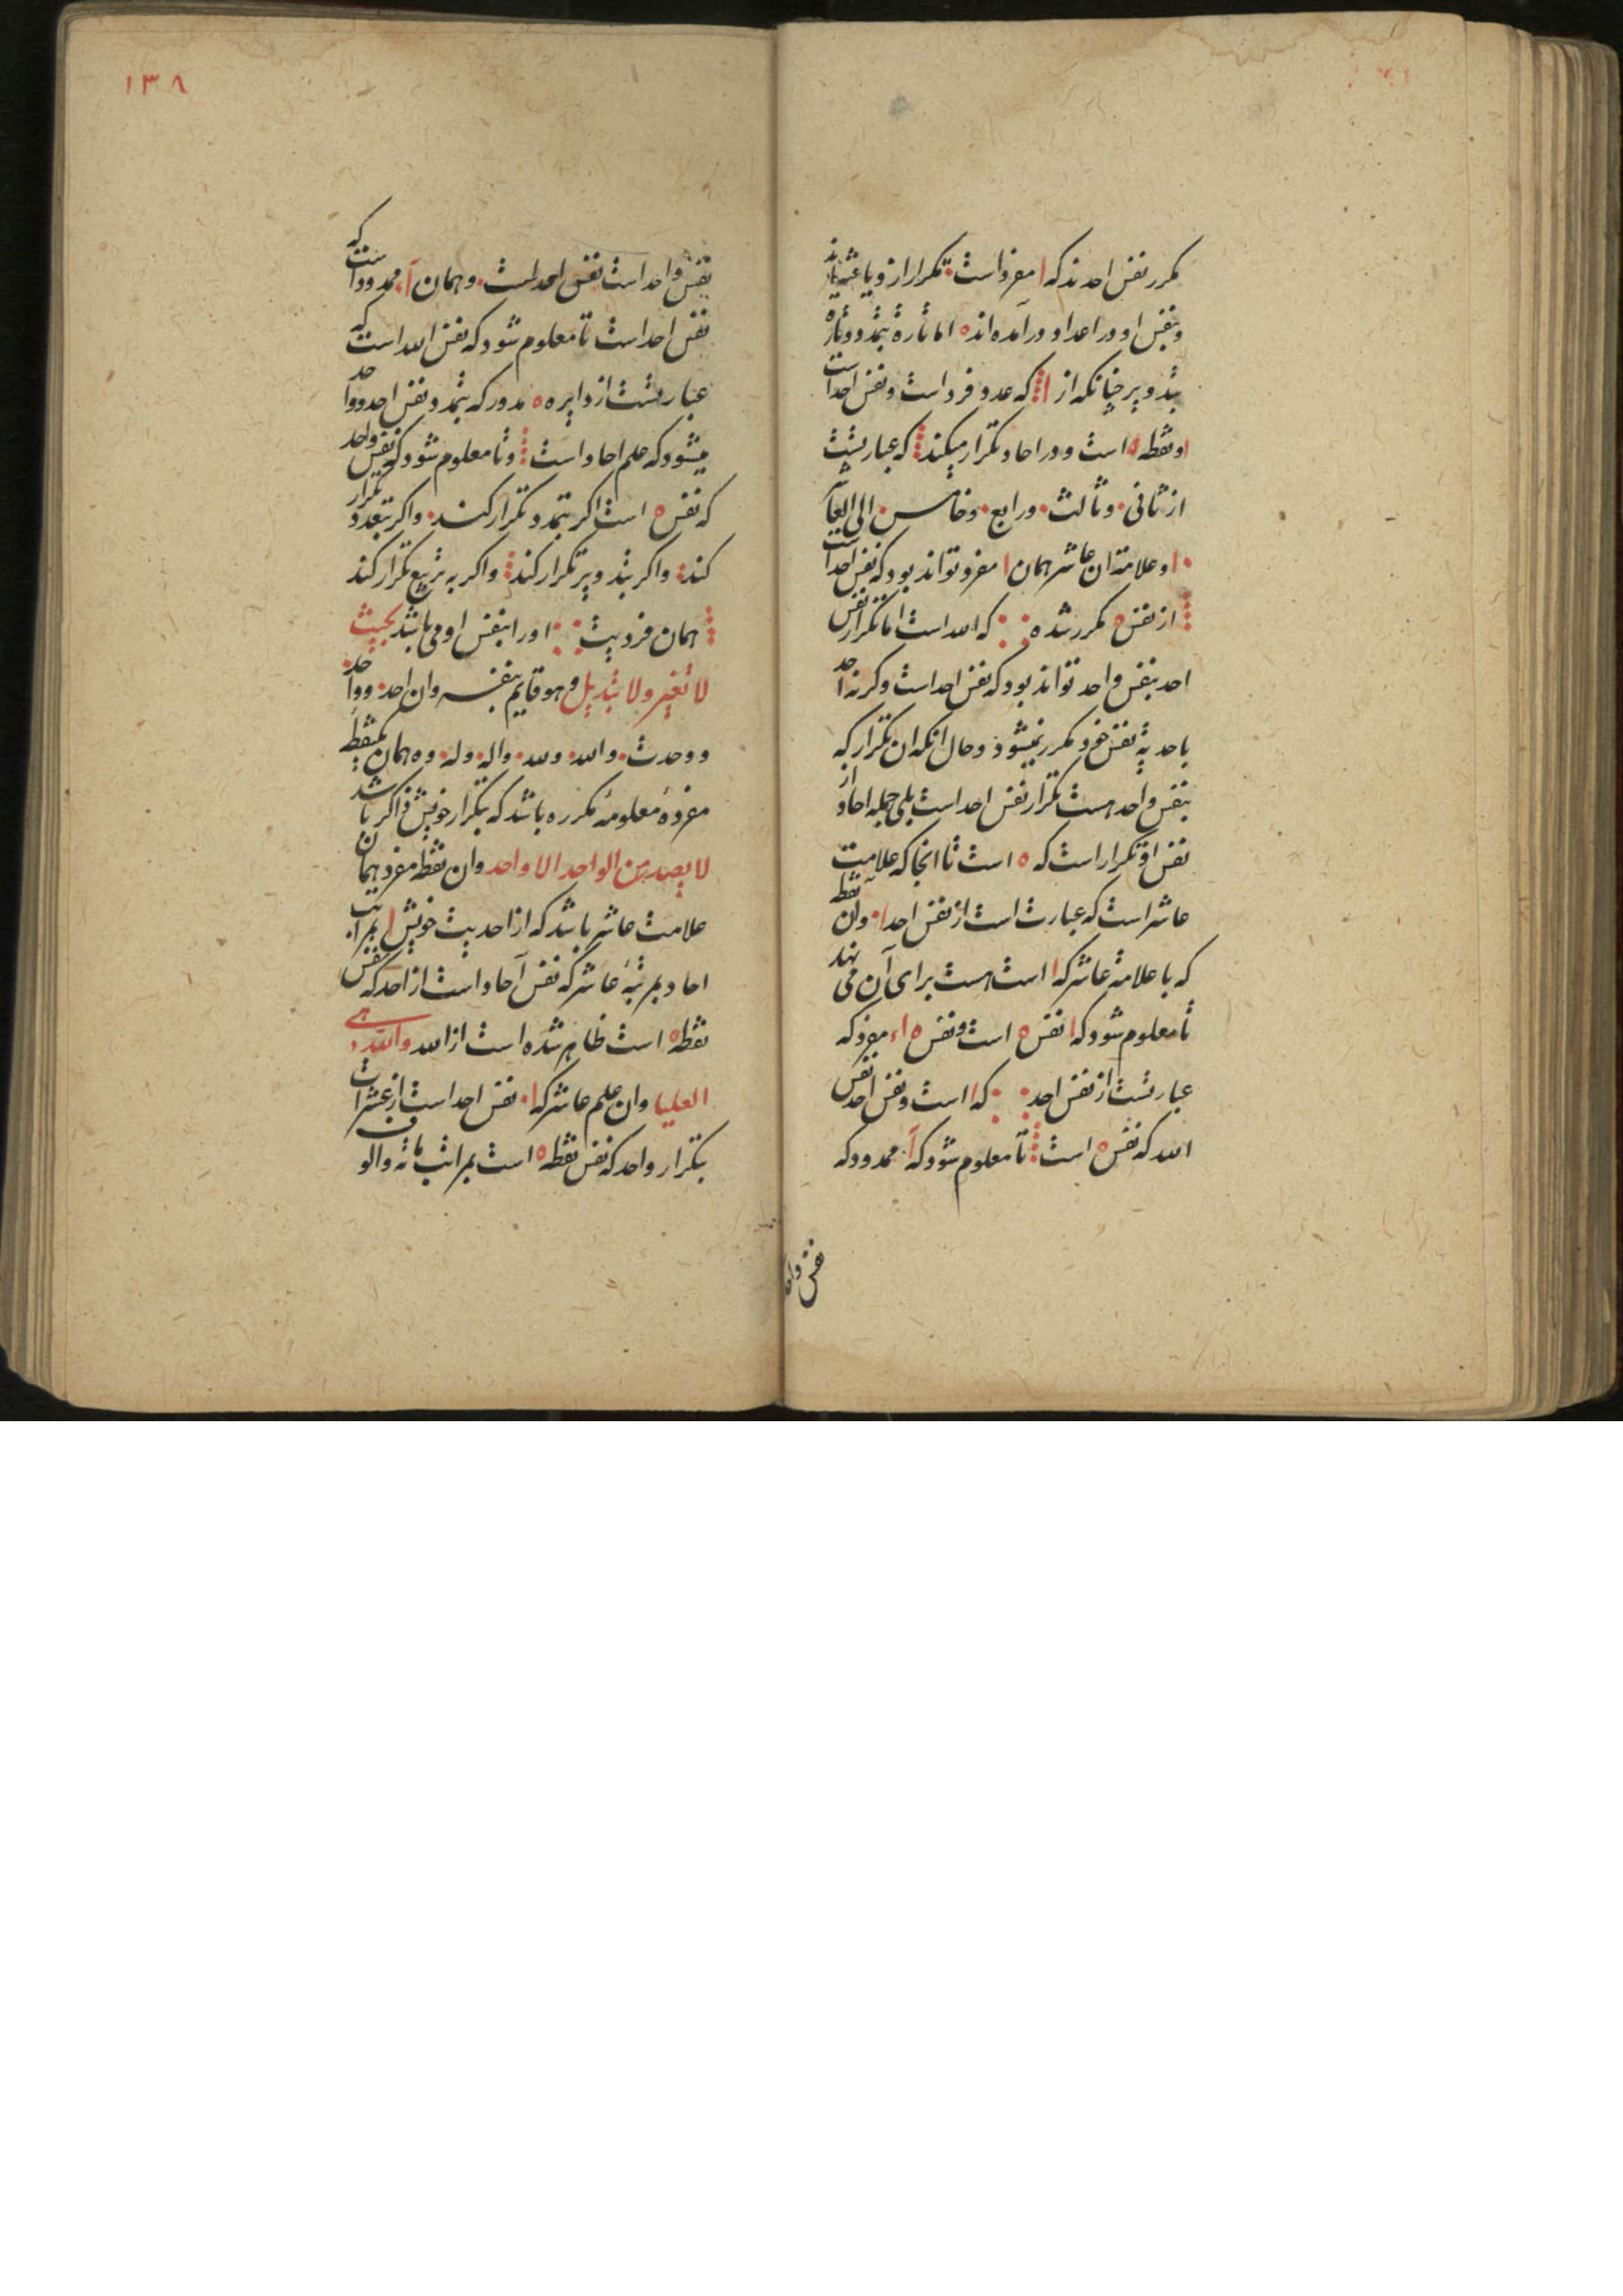 مکرر نفس احدند که ا مفرد است تکرار ازو یا
و بنفس او در اعداد درآمده‌اند ه اما تارهٔ بتمدد و تارهٔ
بتدویر چنانکه از ا که عدد فرد است و نفس احد است
و نقطه ه است و در احاد تکرار میکند که عبارتست
از ثانی و ثالث و رابع و خامس الی العاشر
۱۰ و علامة ان عاشر همان ا مفرد تواند بود که نفس احد است
از نفس ه مکرر شده که الله است اما تکرار نفس
احد بنفس واحد تواند بود که نفس احد است وگرنه احد
باحدیة نفس خود مکرر نمیشود و حال انکه ان تکرار که
بنفس واحد هست تکرار نفس احد است بلی جمله احاد از
نفس او تکرار است که ه است تا انجا که علامت
عاشر است که عبارت است از نفس احد ۱۰ و ان نقطه
که با علامة عاشر که ا است هست برای آن می نهد
تا معلوم شود که ا نفس ه است و نفس ه ا مفرد که
عبارتست از نفس احد که ا است و نفس احد نفس
الله که نفس ه است تا معلوم شود که آ ممدود که
نفس واحد
۱۳۸
نفس واحد است نفس احد است و همان آ ممدود است که
نفس احد است تا معلوم شود که نفس الله است که
عبارتست از دایره ه مدور که بتمدد نفس احد و واحد
میشود که علم احاد است و تا معلوم شود که نفس واحد
که نفس ه است اکر بتمدد تکرار کند و اکر بتعدد تکرار
کند و اکر بتدویر تکرار کند و اکر به تربیع تکرار کند
همان فردیت او را بنفس او می باشد بحیث
لا تغیر ولا تبدیل و هو قایم بنفسه و ان احد و واحد
و وحدت و الله و لله و اله و له و ه همان یکنقطه
مفردهٔ معلومهٔ مکرره باشد که بتکرار خویش ذاکر باشد
لا یصدر من الواحد الا واحد و ان نقطه مفرد همان
علامت عاشر باشد که از احدیت خویش ا بمراتب
احاد بمرتبهٔ عاشر که نفس آحاد است از احد که نفس
نقطه ه است ظاهر شده است از الله و الله هی
العلیا و ان علم عاشر که ۱۰ نفس احد است از عشرات
بتکرار واحد که نفس نقطه ه است بمراتب مائه و الوف